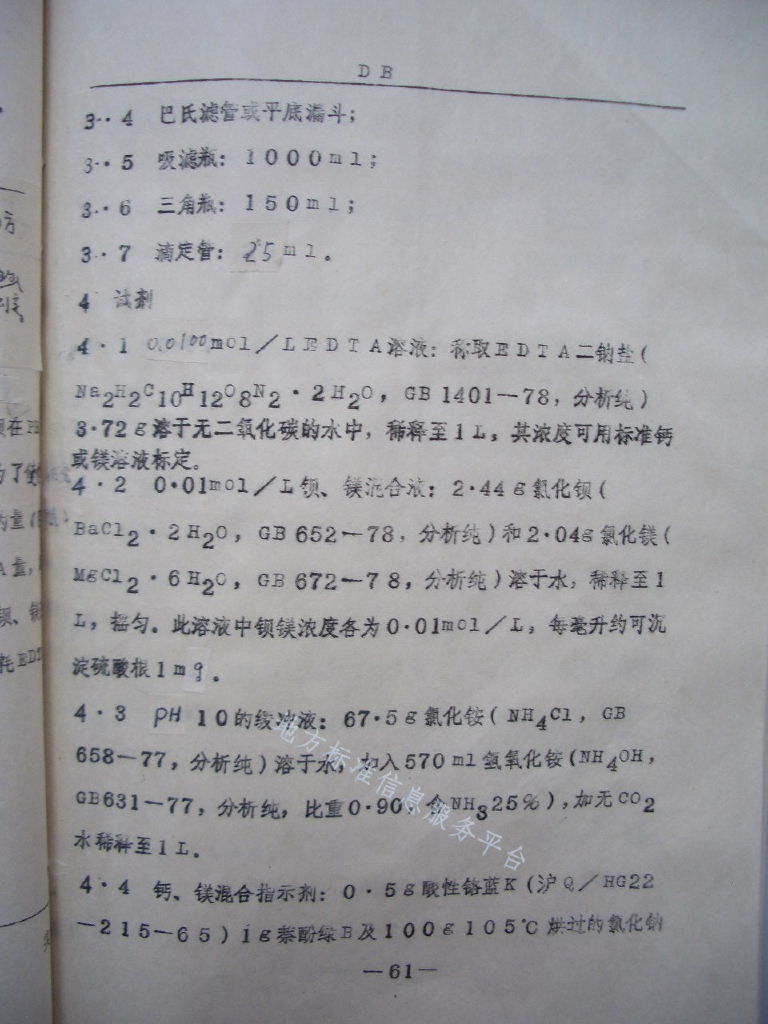 DB
3·4 巴氏滤管或平底漏斗；
3·5 吸滤瓶：1000ml；
3·6 三角瓶：150ml；
3·7 滴定管：25ml。
4 试剂
4·1 0.0100mol／LEDTA溶液：称取EDTA二钠盐（
Na₂H₂C₁₀H₁₂O₈N₂·2H₂O，GB1401—78，分析纯）
3·72g溶于无二氧化碳的水中，稀释至1L，其浓度可用标准钙
或镁溶液标定。
4·2 0·01mol／L钡、镁混合液：2·44g氯化钡（
BaCl₂·2H₂O，GB652—78，分析纯）和2·04g氯化镁（
MgCl₂·6H₂O，GB672—78，分析纯）溶于水，稀释至1
L，摇匀。此溶液中钡镁浓度各为0·01mol／L，每毫升约可沉
淀硫酸根1mg。
4·3 pH10的缓冲液：67·5g氯化铵（NH₄Cl，GB
658—77，分析纯）溶于水，加入570ml氢氧化铵（NH₄OH，
GB631—77，分析纯，比重0·90，含NH₃25%），加无CO₂
水稀释至1L。
4·4 钙、镁混合指示剂：0·5g酸性铬蓝K（沪Q／HG22
—215—65）1g萘酚绿B及100g105℃烘过的氯化钠
—61—
地方标准信息服务平台